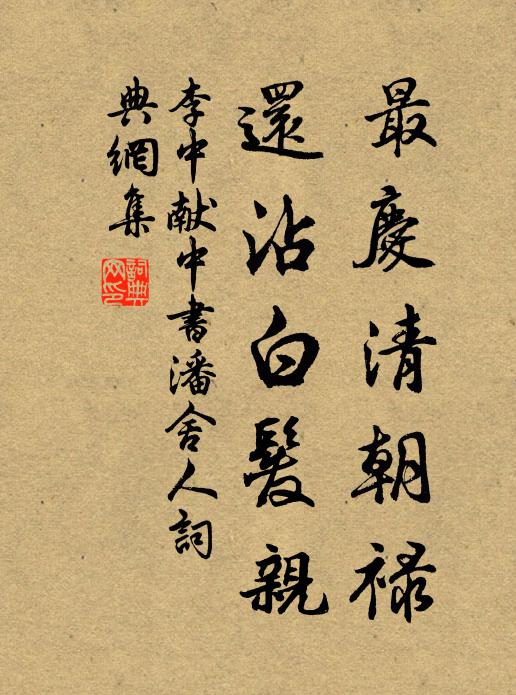 最慶清朝禄
還沾白髮親
李中献中書潘舍人詞
典網集
詞典
网印